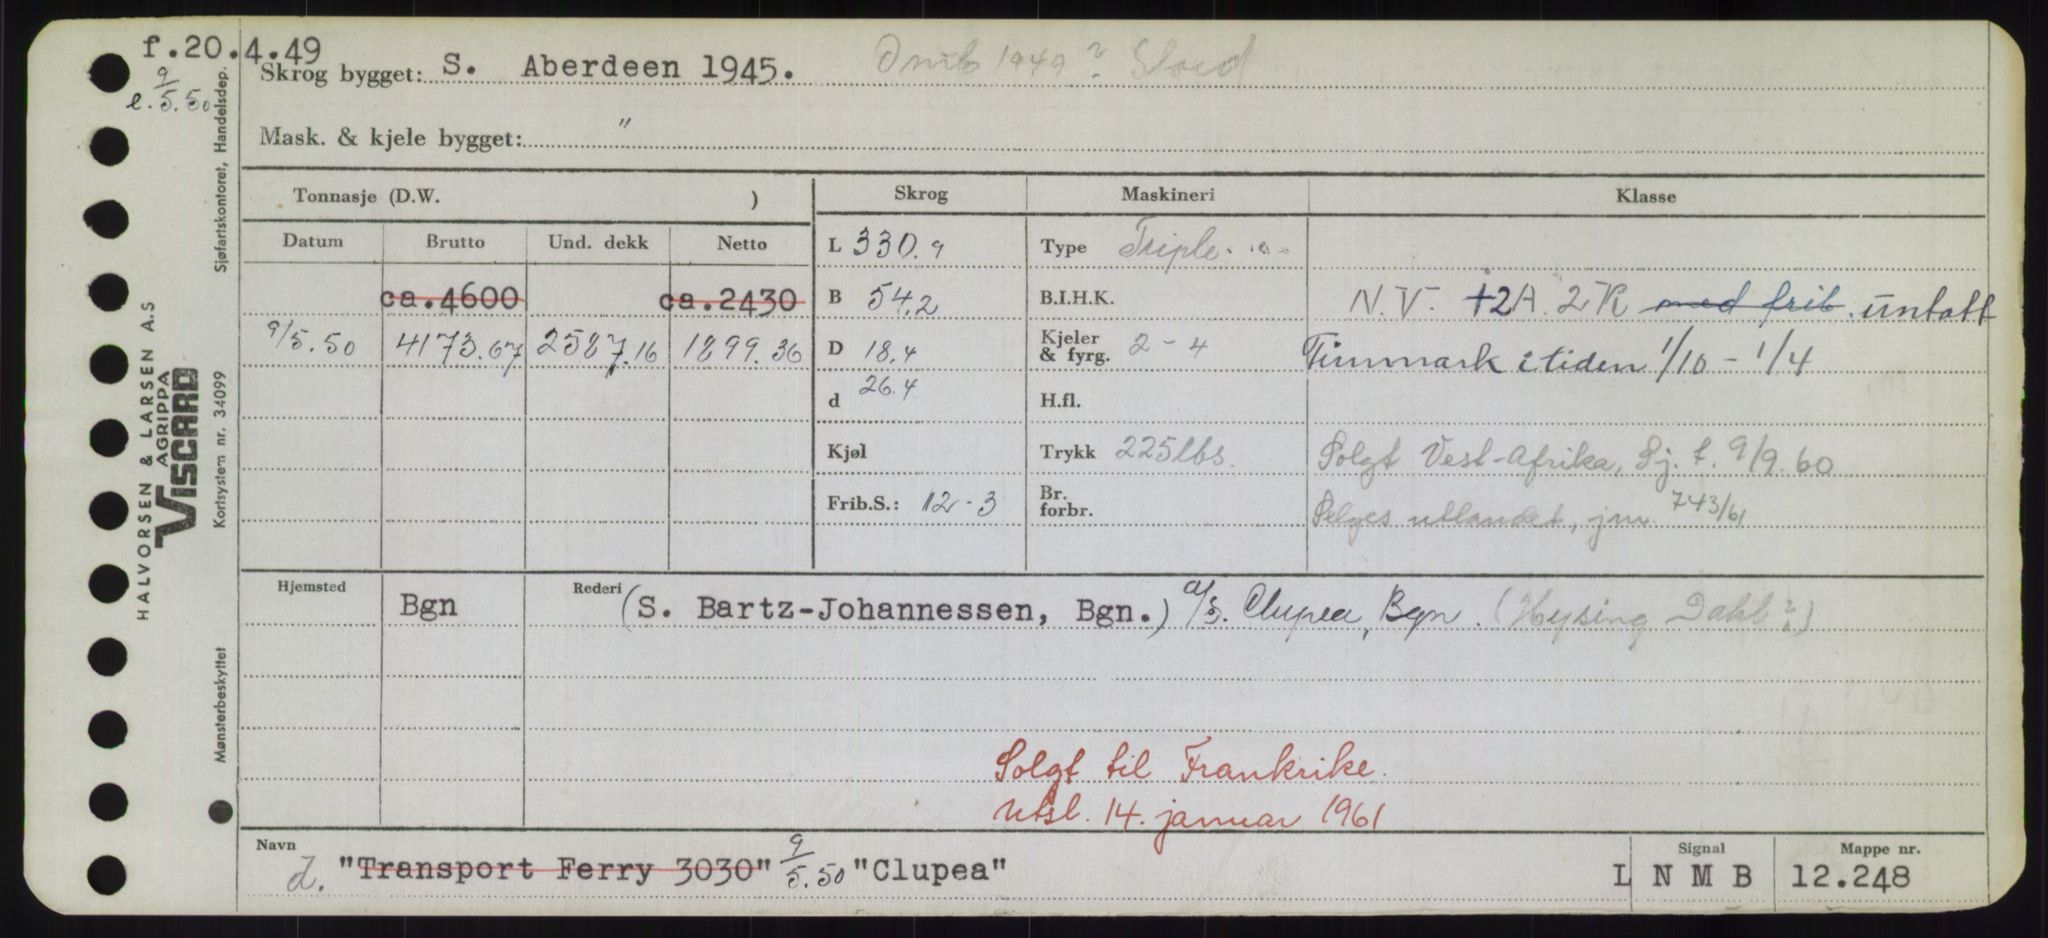 f.20.4.49
e. 9/5.50
Skrog bygget: S. Aberdeen 1945. Omb 1949? Stord
Mask. & kjele bygget: "
Tonnasje (D.W. ) Skrog Maskineri Klasse
Datum Brutto Und. dekk Netto L 330.9 Type Triple.
ca.4600 ca.2430 B 54.2 B.I.H.K. N.V. +2A. 2K med frib. untatt
9/5.50 4173.67 2587.16 1899.36 D 18.4 Kjeler & fyrg. 2-4 Finnmark i tiden 1/10 - 1/4
d 26.4 H.fl.
Kjøl Trykk 225 lbs. Solgt Vest-Afrika, Sj. t. 9/9.60
Frib.S.: 12-3 Br. forbr. Selges utlandet, jnr 743/61
Hjemsted Bgn Rederi (S. Bartz-Johannessen, Bgn.) A/S. Clupea, Bgn. (Hysing Dahl?)
Solgt til Frankrike.
Utsl. 14. januar 1961
Navn Signal Mappe nr.
D. "Transport Ferry 3030" 9/5.50 "Clupea" L N M B 12.248
HALVORSEN & LARSEN A.S
AGRIPPA
VISCARD
Mønsterbeskyttet Kortsystem nr. 34099 Sjøfartskontoret, Handelsdep.